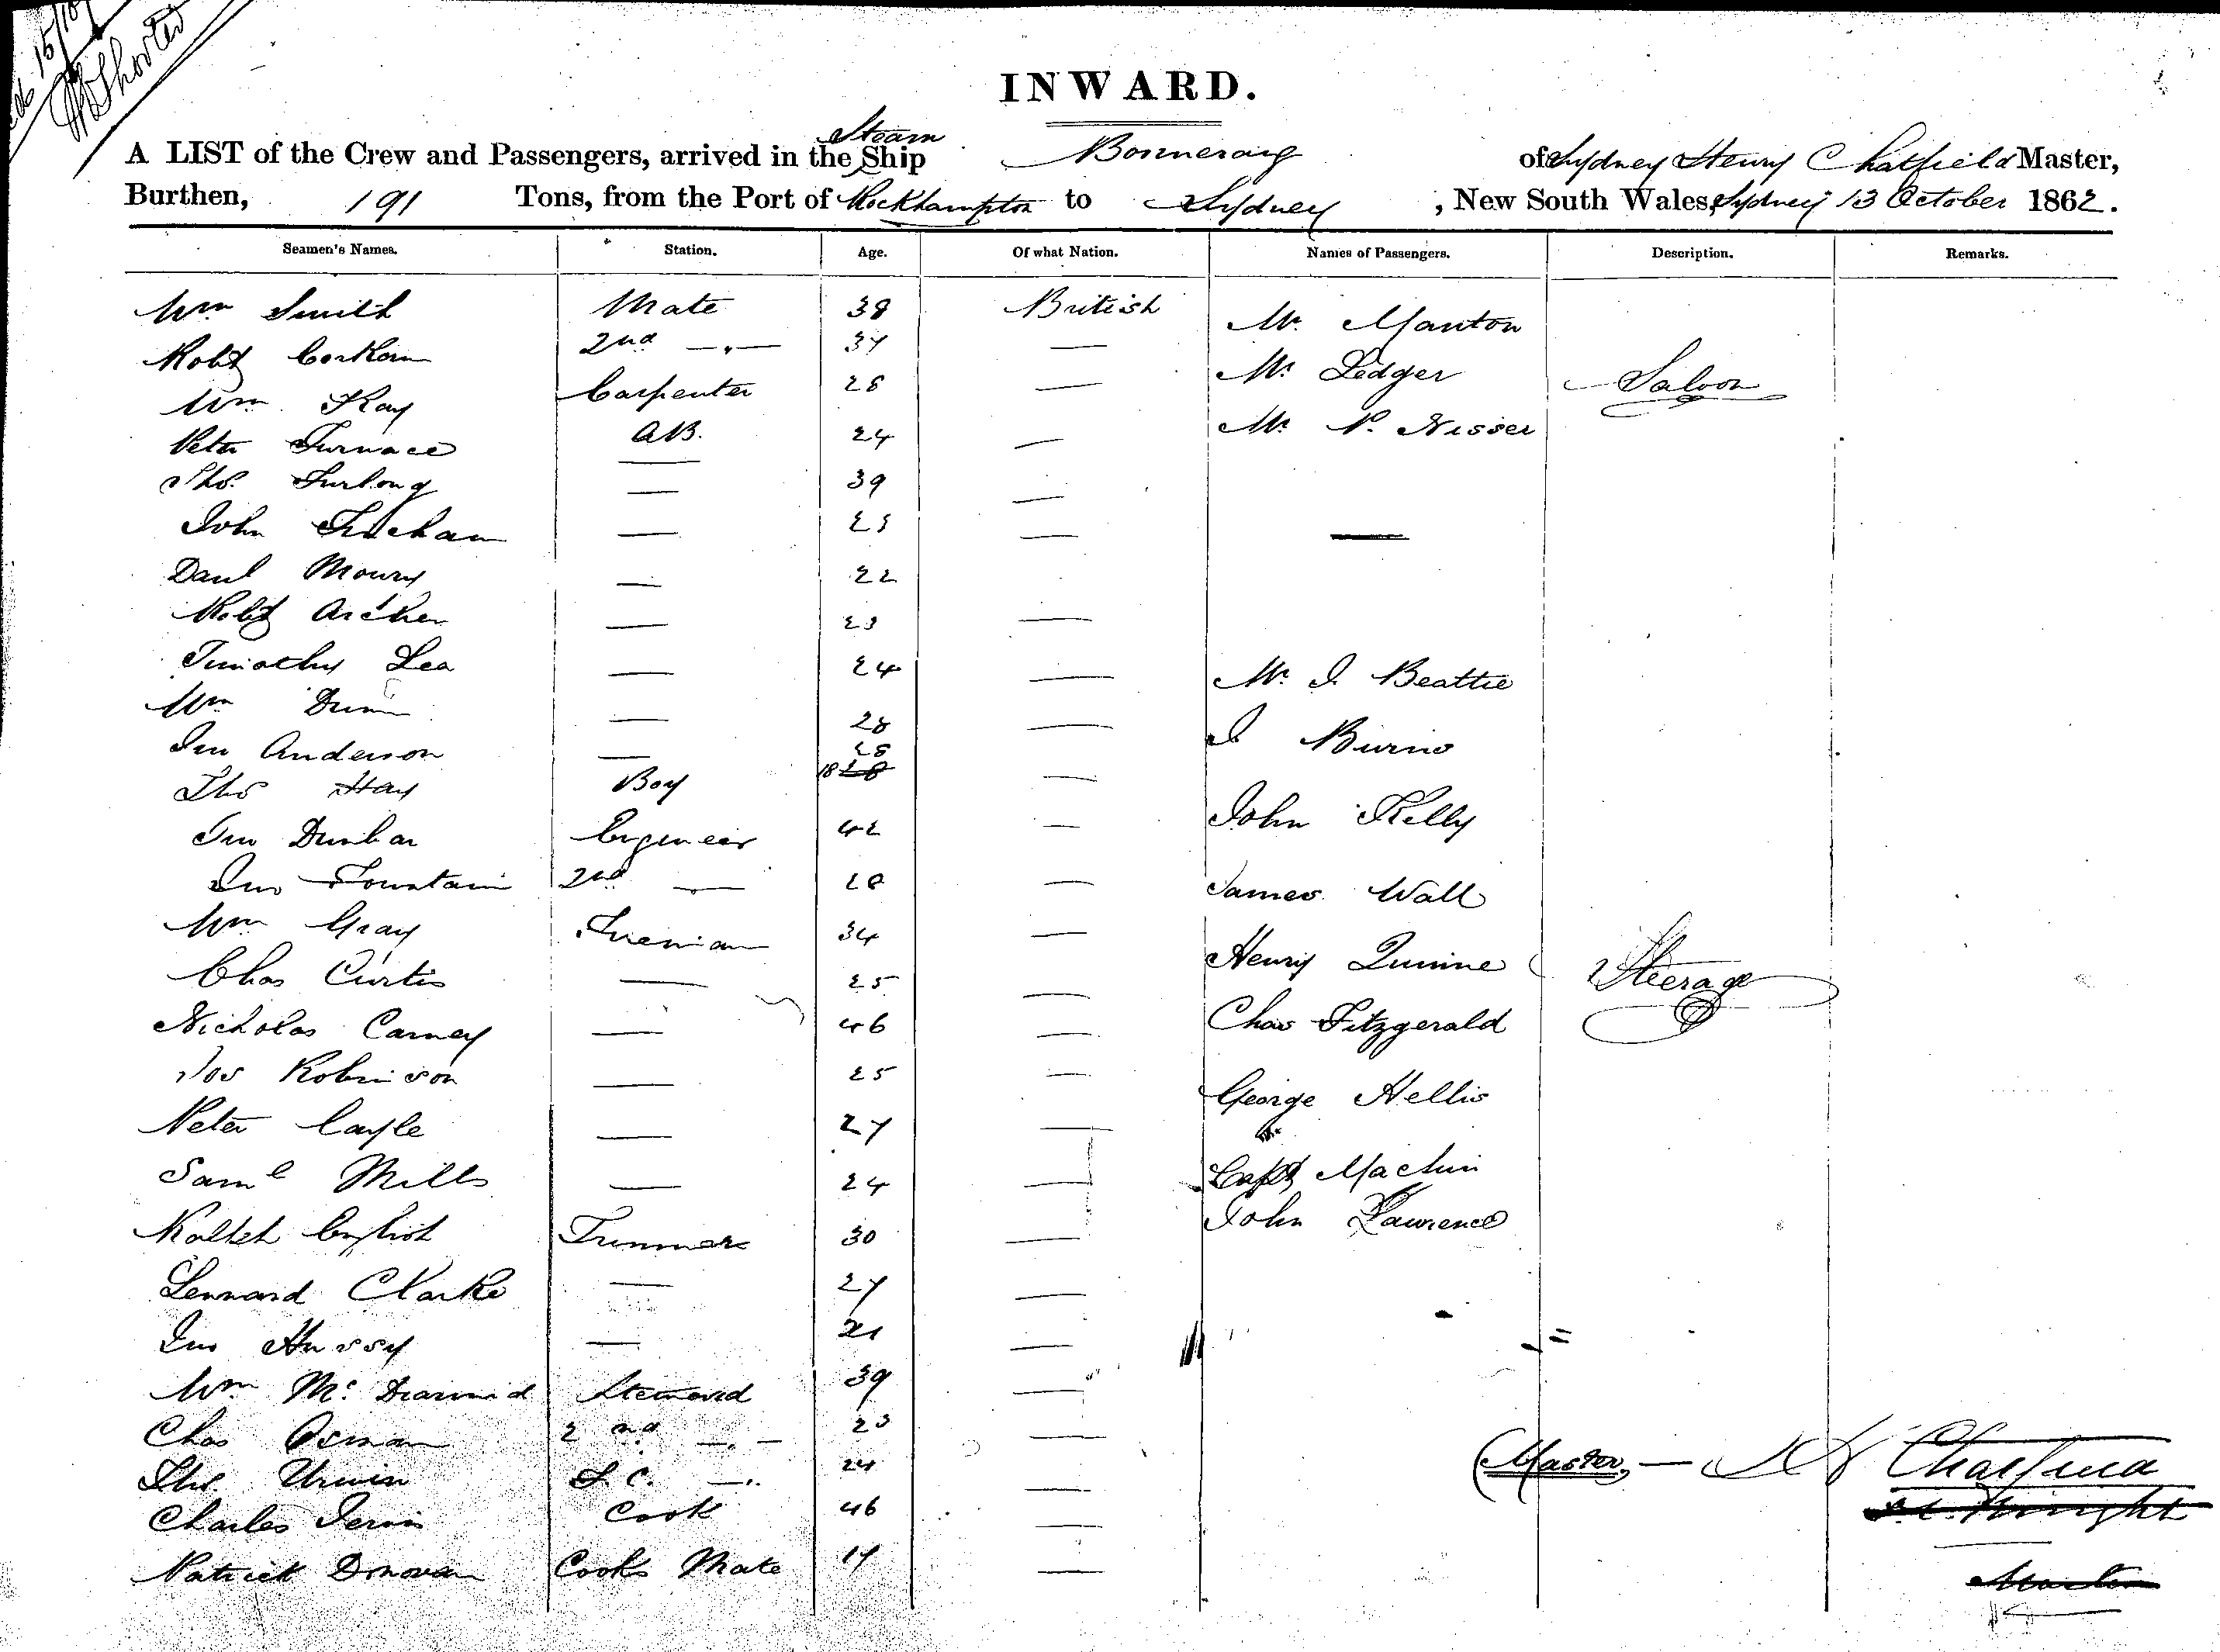 15/10
INWARD.
A LIST of the Crew and Passengers, arrived in the Steam Ship Boomerang of Sydney Henry Chatfield Master,
Burthen, 191 Tons, from the Port of Rockhampton to Sydney, New South Wales, Sydney 13 October 1862.
Seamen's Names. Station. Age. Of what Nation. Names of Passengers. Description. Remarks.
Wm Smith Mate 38 British Mr. Manton
Robt Corkham 2nd —"— 37 —
Mr. Ledger Saloon
Wm. Kay Carpenter 28 —
Mr. P. Nisser
Peter Furnace A.B. 24 —
Thos. Furlong — 39 —
John — —
Danl Mowry — 22
Robt Archer — 23 —
Timothy Lea — 24 — Mr. J. Beattie
Wm Dunn — 28 —
Jno Anderson — 28 J Burns
Thos Hay Boy 18 —
Jno Dunbar Engineer 42 — John Kelly
Jno Fountain 2nd — 28 — James Wall
Wm Gray Fireman 34 —
Henry Quinine Steerage
Chas Curtis — 25 —
Nicholas Carney — 46 — Chas Fitzgerald
Jos Robinson — 25 —
George Hellis
Peter Cayle — 27 —
Saml Mills — 24 — Capt Machin
John Lawrence
English Trimmer 30 —
Lennard Clarke — 27 —
Jno Hussy — 21 —
Wm Mc. Dearmid Steward 39 —
Chas Osman 2nd —"— 23 —
Thos. Urwin S.C. —"— 24 —
Master — S H Chatfield
Charles Jervis Cook 46 —
Knight
Patrick Donovan Cooks Mate 17 —
Master